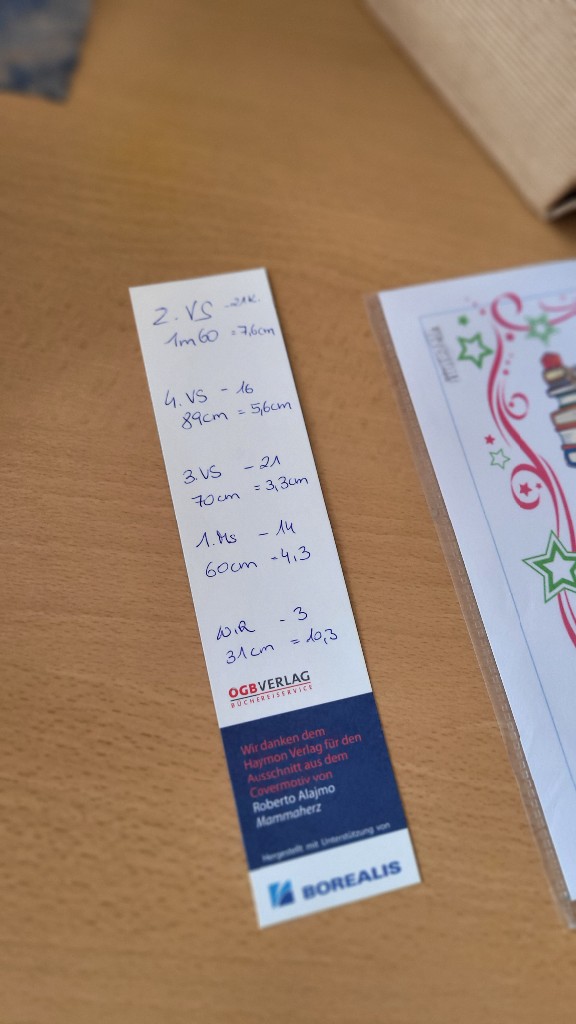 2. VS - 21K.
1m60 = 7,6cm
4. VS - 16
89cm = 5,6cm
3. VS - 21
70cm = 3,3cm
1. Ms - 14
60cm = 4,3
WIR - 3
31cm = 10,3
OGBVERLAG
BÜCHEREISERVICE
Wir danken dem
Haymon Verlag für den
Ausschnitt aus dem
Covermotiv von
Roberto Alajmo
Mammaherz
Hergestellt mit Unterstützung von
BOREALIS